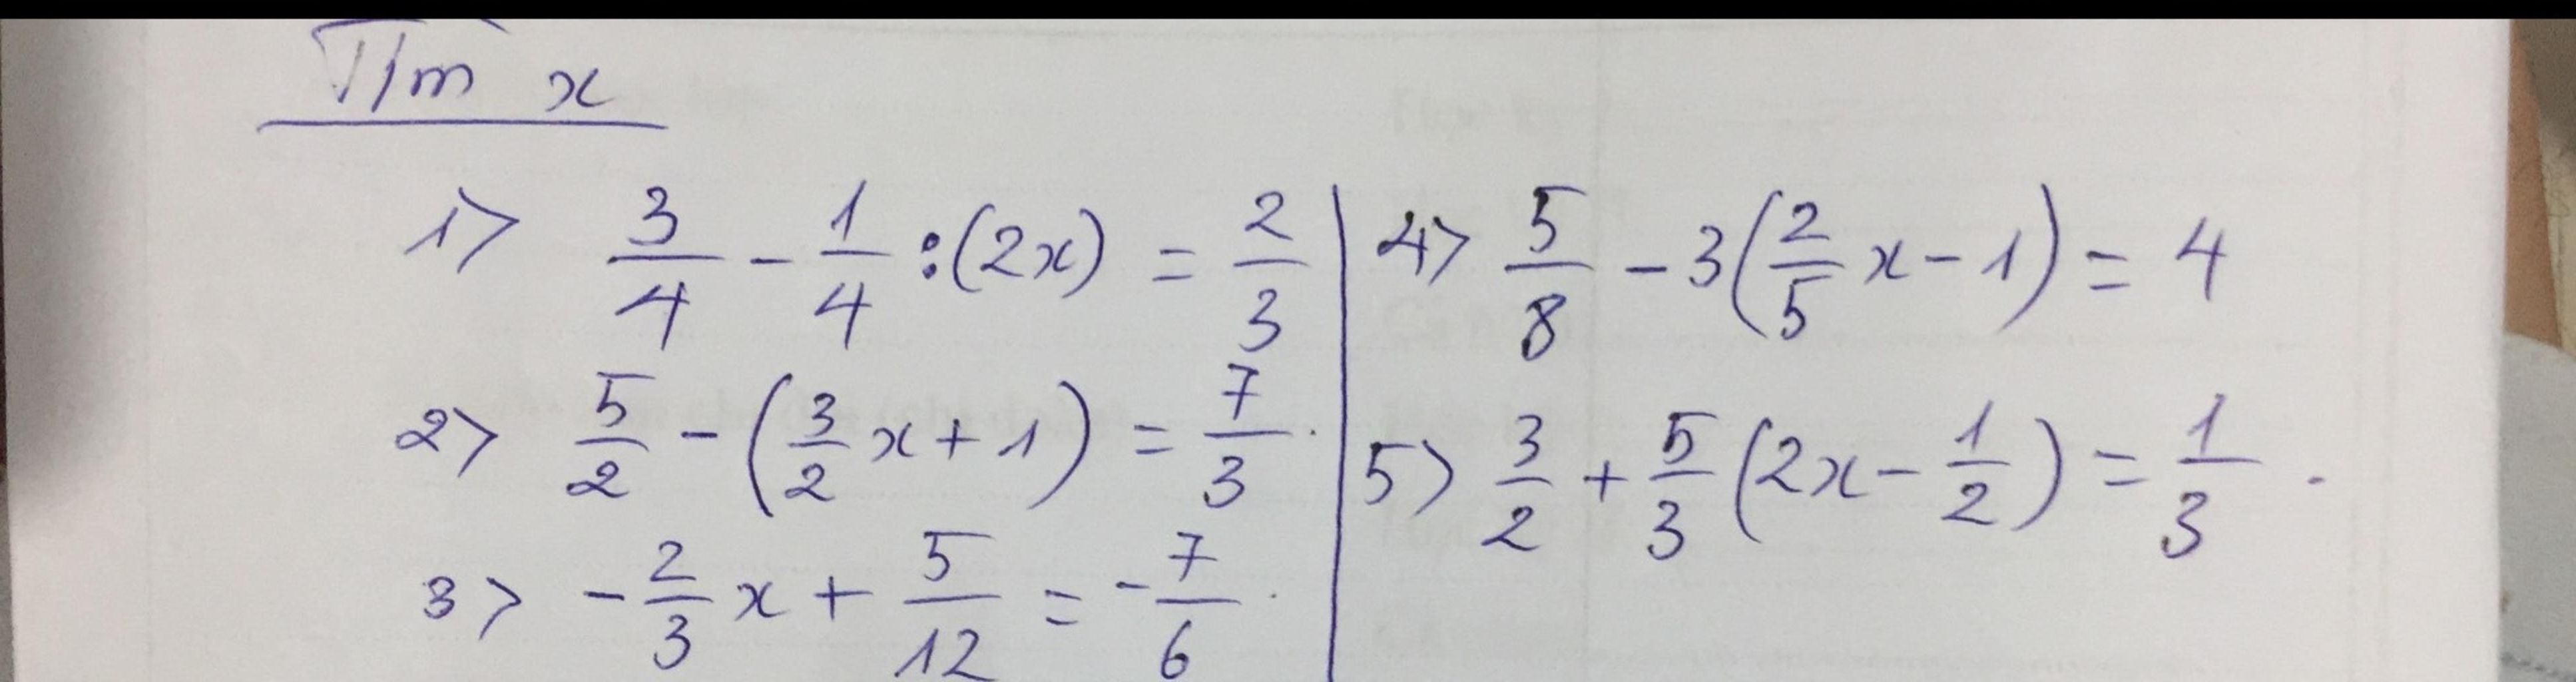 Tìm x
1> 3/4 - 1/4 : (2x) = 2/3
2> 5/2 - (3/2 x + 1) = 7/3.
3> - 2/3 x + 5/12 = - 7/6.
4> 5/8 - 3(2/5 x - 1) = 4
5> 3/2 + 5/3 (2x - 1/2) = 1/3.